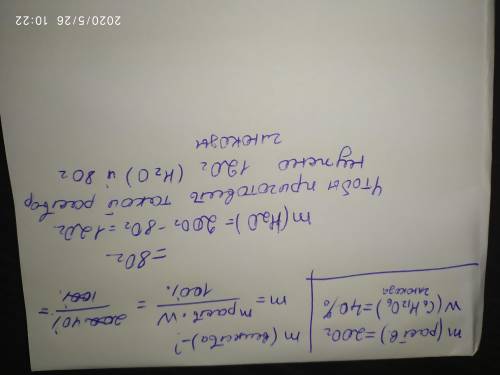 m(раств)=200г
W(C₆H₁₂O₆)=40%
глюкоза
m(вещества)-?
m = m раств·W / 100% = 200·40% / 100% =
=80г
m(H₂O)=200г-80г=120г
Чтобы приготовить такой раствор
нужно 120г (H₂O) и 80г
глюкозы
2020/5/26 10:22